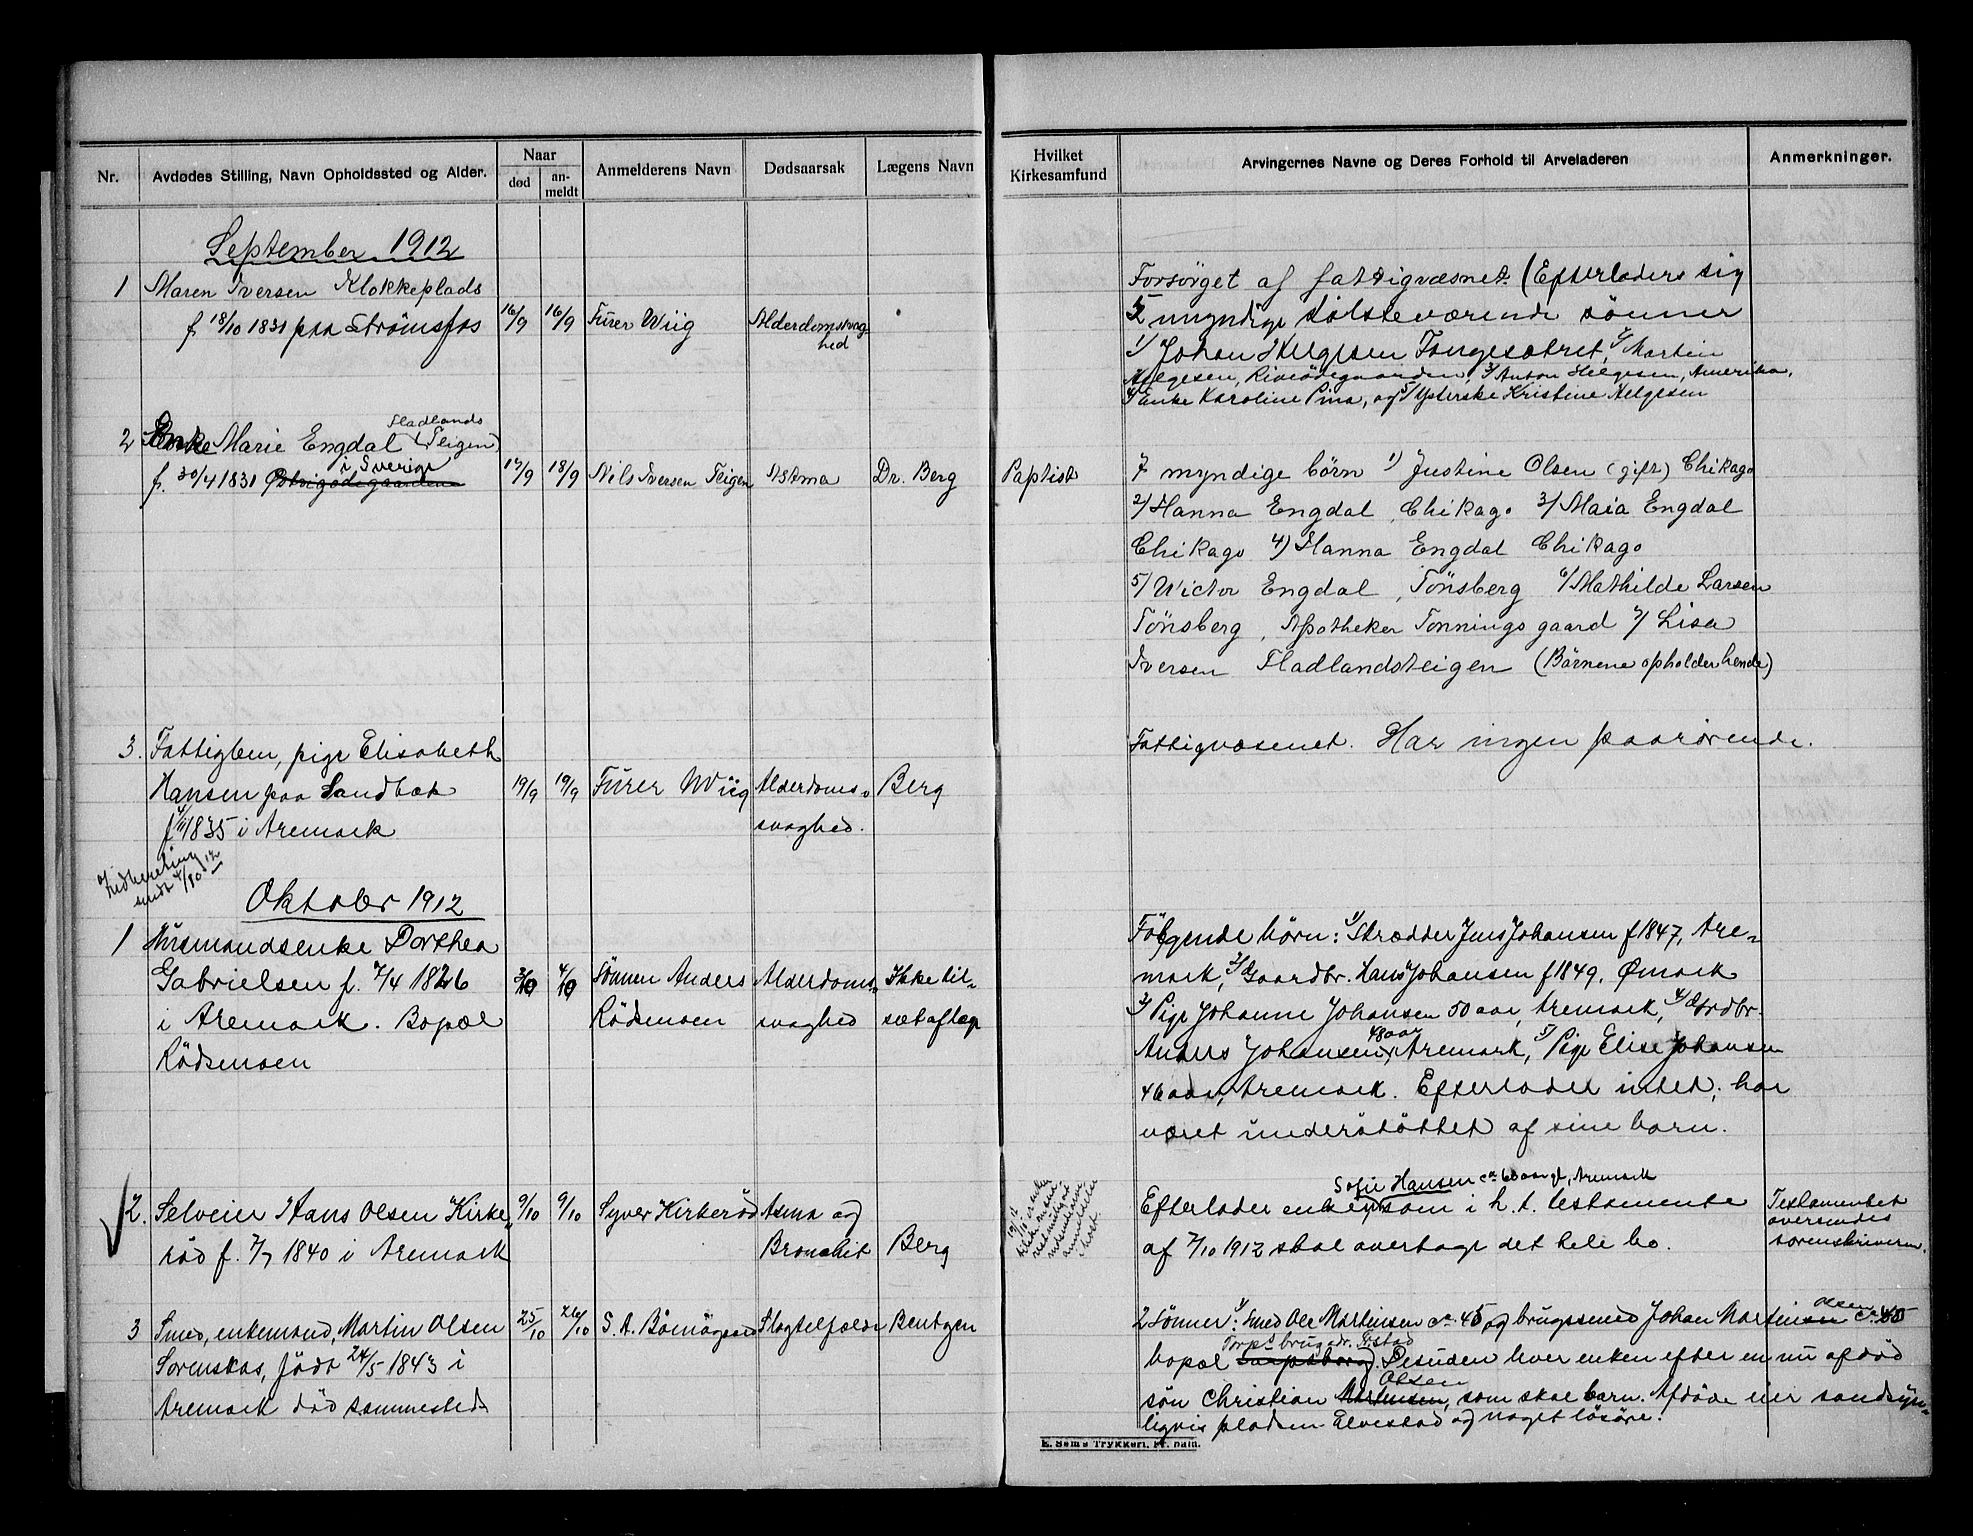 Nr.
Avdødes Stilling, Navn Opholdssted og Alder.
Naar
død
an-
meldt
Anmelderens Navn
Dødsaarsak
Lægens Navn
Hvilket
Kirkesamfund
Arvingernes Navne og Deres Forhold til Arveladeren
Anmerkninger.
September 1912
1 Maren Iversen Klokkeplads
f. 18/10 1831 paa Strømsfos
16/9 16/9 Furer Wiig Alderdomssvag
hed
Forsörget af fattigvæsnet. (Efterladers sig
5 myndige tilsteværende sönner
1) Johan Helgesen Tangesætret, 2) Martin
Helgesen, Riveödegaarden, 3) Anton Helgesen, Amerika,
4) Enke Karoline Pina, og 5) Kristine Helgesen
2 Enke Marie Engdal (Fladlands
Teigen)
i Sverige
f. 30/4 1831
17/9 18/9 Nils Iversen Teigen Astma Dr. Berg Baptist
7 myndige börn 1) Justine Olsen (gift) Chikago
2) Hanna Engdal, Chikago 3) Maia Engdal
Chikago 4) Hanna Engdal Chikago
5) Wictor Engdal, Tönsberg 6) Mathilde Larsen
Tönsberg, Apotheker Tonnings gaard 7) Lisa
Iversen Fladlandsteigen (Börnene opholder hende)
3. Fattiglem, pige Elisabeth
Hansen paa Sandbæk
f 4/11 1835 i Aremark
19/9 19/9 Furer Wiig Alderdoms-
svaghed.
Berg
Fattigvæsenet. Har ingen paarørende.
Indberetning
sendt 4/10 12
Oktober 1912
1 Husmandsenke Dorthea
Gabrielsen f. 7/4 1826
i Aremark. Bopæl
Rödsmoen
3/10 4/10 Sönnen Anders
Rödsmoen
Alderdoms-
svaghed
Ikke til-
sæt af læge
Fölgende börn: 1) Skrædder Jens Johansen f 1847, Are-
mark, 2) Gaardbr. Hans Johansen f 1849, Ømark
3) Pige Johanne Johansen 50 aar, Aremark, 4) Jordbr.
Anders Johansen 48 aar Aremark, 5) Pige Elise Johansen
46 aar, Aremark. Efterladet intet; har
været understöttet af sine barn.
2. Selveier Hans Olsen Kirke-
röd f. 7/7 1840 i Aremark
9/10 9/10 Syver Kirkeröd Asma og
Bronchit Berg
Sofie Hansen ca 60 aar gl, Aremark
Efterlader enken som i h. t. testamente
af 7/10 1912 skal overtage det hele bo.
Testamentet
oversendes
sorenskriveren.
3 Smed, enkemand, Martin Olsen
Sorenskas, födt 24/5 1843 i
Aremark död sammesteds
25/10 26/10 S. A. Bömögaard Slagtilfælde Bentzen
2 Sönner: 1) Smed Ole Martinsen ca. 45 og brugssmed Johan Martinsen Olsen
bopæl Sarpsborg Torp brug pr. Fstad. Desuden hver enken efter en nu afdöd
sön Christian Martinsen Olsen, som skal barn. Afdöde eier sandsyn-
ligvis pladsen Elvestad og noget lösöre.
E. Sems Trykkeri, Fr.hald.